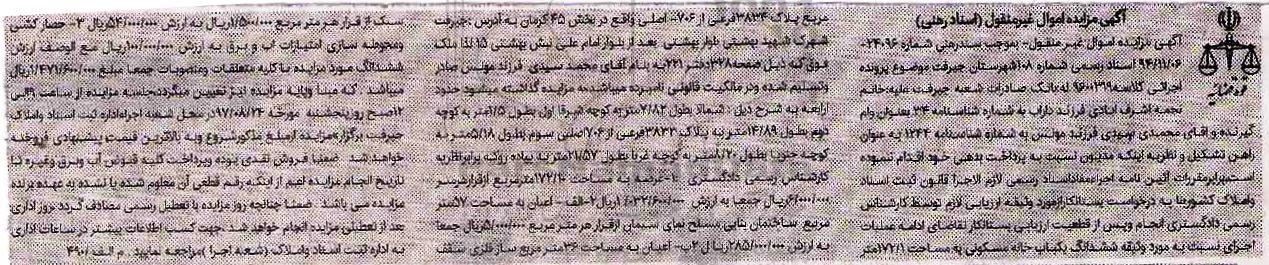 آگهی مزایده اموال غیرمنقول (اسناد رهنی)
آگهی مزایده اموال غیر منقول- بموجب سندرهنی شماره ۲۴۰۹۶-
۹۴/۱۱/۰۶ اسناد رسمی شماره ۱۰۸شهرستان جیرفت موضوع پرونده
اجرائی کلاسه۹۶۰۰۳۹۹ له:بانک صادرات شعبه جیرفت علیه:خانم
نجمه اشرف آبادی فرزند داراب به شماره شناسنامه ۳۴ بعنوان وام
گیرنده و آقای محمدی فرزند مونس به شماره شناسنامه ۱۲۴۴ به عنوان
راهن تشکیل و نظربه اینکه مدیون نسبت به پرداخت بدهی خود اقدام ننموده
است.برابرمقررات آئین نامه اجراءمفاداسناد رسمی لازم الاجرا قانون ثبت اسناد
واملاک کشوربنا به درخواست بستانکارمورد وثیقه ارزیابی لازم توسط کارشناس
رسمی دادگستری انجام وپس از قطعیت ارزیابی بستانکارتقاضای ادامه عملیات
اجرای نسبت به مورد وثیقه ششدانگ یکباب خانه مسکونی به مساحت ۱۷۲/۱متر
مربع پلاک ۳۸۳۴فرعی از ۷۰۶- اصلی واقع در بخش ۴۵ کرمان به آدرس :جیرفت
شهرک شهید بهشتی بلوار بهشتی بعد از بلوار امام علی نبش بهشتی ۱۵ لذا ملک
فوق که ذیل صفحه۳۲۸دفتر ۲۲۱به نام آقای محمد سیدی فرزند مونس صادر
وتسلیم شده ودر مالکیت قانونی نامبرده میباشد،به مزایده گذاشته میشود حدود
اربعه به شرح ذیل : شمالا بطول ۴/۸۲متربه کوچه شرقا اول بطول ۱/۵متر به کوچه
دوم بطول ۱۴/۸۹متر به پلاک ۳۸۳۳فرعی از ۷۰۶اصلی سوم بطول ۵/۱۸متر به
کوچه جنوبا بطول ۸/۲۰متر به کوچه غربا بطول ۲۱/۵۷متر به پیاده رو که برابرنظریه
کارشناس رسمی دادگستری ۱-عرصه به مساحت ۱۷۲/۱۰مترمربع ازقرارهرمتر
۶/۰۰۰/۰۰۰ریال جمعا به ارزش ۱/۰۳۲/۶۰۰/۰۰۰ریال۲-الف - اعیان به مساحت ۵۷متر
مربع ساختمان بنایی مسلح نمای سیمان ازقرار هر متر مربع ۵/۰۰۰/۰۰۰ریال جمعا
به ارزش ۲۸۵/۰۰۰/۰۰۰ریال۲ب- اعیان به مساحت ۳۶متر مربع ساز فلزی سقف
سبک از قرار هر متر مربع ۱/۵۰۰/۰۰۰ریال به ارزش ۵۴/۰۰۰/۰۰۰ریال ۳- حصار کشی
ومحوطه سازی امتیازات آب و برق به ارزش ۱۰۰/۰۰۰/۰۰۰ریال مع الوصف ارزش
ششدانگ مورد مزایده با کلیه متعلقات ومنصوبات جمعا مبلغ ۱/۴۷۱/۶۰۰/۰۰۰ریال
میباشد که مبنا وپایه مزایده نیز تعیین میگردد.جلسه مزایده از ساعت ۹الی
۱۲صبح روزپنجشنبه مورخه ۹۷/۰۸/۲۴در محل شعبه اجراءاداره ثبت اسناد واملاک
جیرفت برگزار»مزایده ازمبلغ مذکورشروع وبه بالاترین قیمت پیشنهادی فروخته
خواهد شد ضمنا فروش نقدی بوده وپرداخت کلیه قبوض آب وبرق وغیره تا
تاریخ انجام مزایده اعم از اینکه رقم قطعی آن معلوم شده یا نشده به عهده برنده
مزایده می باشد. ضمنا چنانچه روز مزایده با تعطیل رسمی مصادف گردد ،روز اداری
بعد از تعطیلی مزایده انجام خواهد شد .جهت کسب اطلاعات بیشتر در ساعات اداری
به اداره ثبت اسناد واملاک (شعبه اجرا )مراجعه نمایید. م الف /۴۹۰